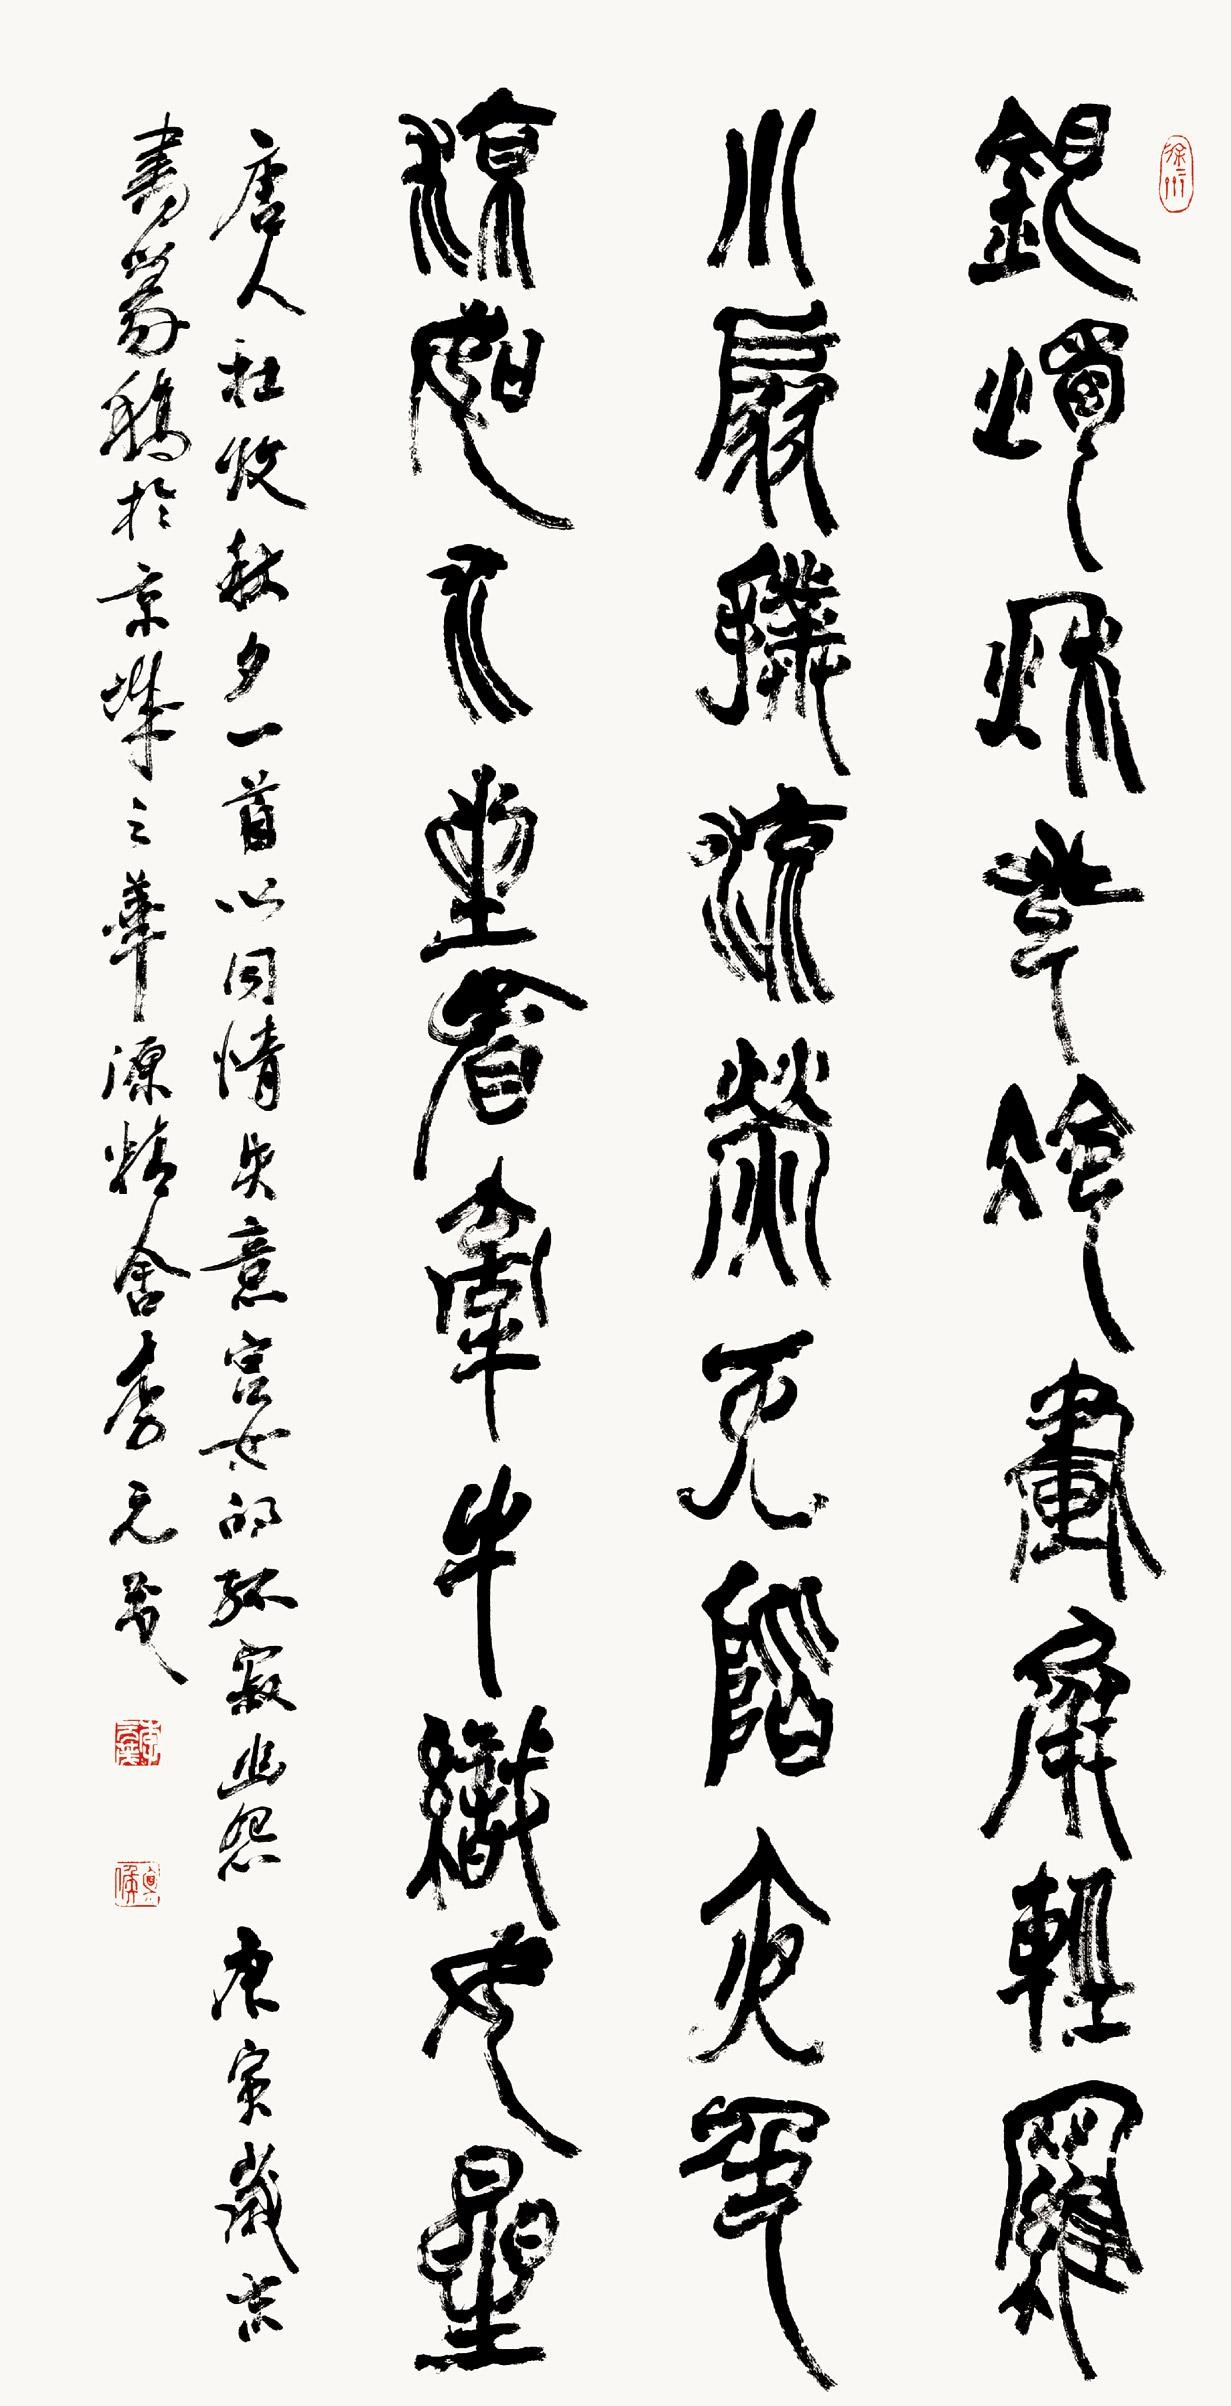 徐州
銀燭秋光冷畫屏輕羅
小扇撲流螢天階夜色
涼如水坐看牽牛織女星
唐人杜牧秋夕一首以同情失意宫女的孤寂幽怨 庚寅歲
書於京城之華源精舍李元茂